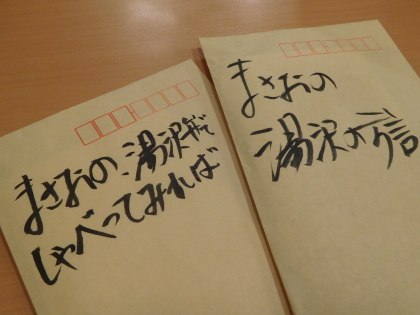 まさおの、湯沢弁で
しゃべってみれば
まさおの
湯沢方言